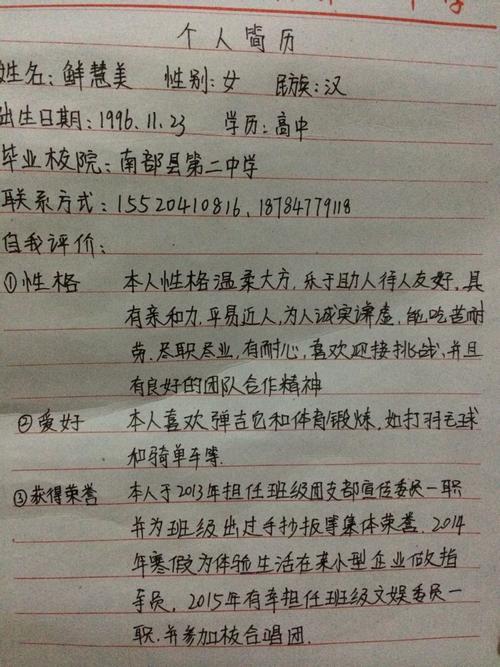 个人简历
姓名：鲜慧美 性别：女 民族：汉
出生日期：1996.11.23 学历：高中
毕业校院：南部县第二中学
联系方式：15520410816，18784779118
自我评价：
①性格 本人性格温柔大方，乐于助人待人友好，具
有亲和力，平易近人，为人诚实谦虚，能吃苦耐
劳，尽职尽业，有耐心，喜欢迎接挑战，并且
有良好的团队合作精神
②爱好 本人喜欢弹吉它和体育锻炼，如打羽毛球
和骑单车等.
③获得荣誉 本人于2013年担任班级团支部宣传委员一职
并为班级出过手抄报等集体荣誉.2014
年寒假为体验生活在某小型企业做指
导员，2015年有幸担任班级文娱委员一
职.并参加校合唱团.